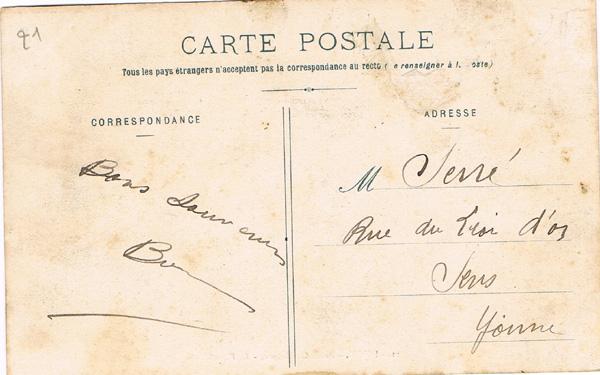 21
CARTE POSTALE
Tous les pays étrangers n'acceptent pas la correspondance au recto (se renseigner à la Poste)
CORRESPONDANCE
Bons Souvenirs
ADRESSE
M Serré
Rue du Lion d'or
Sens
Yonne